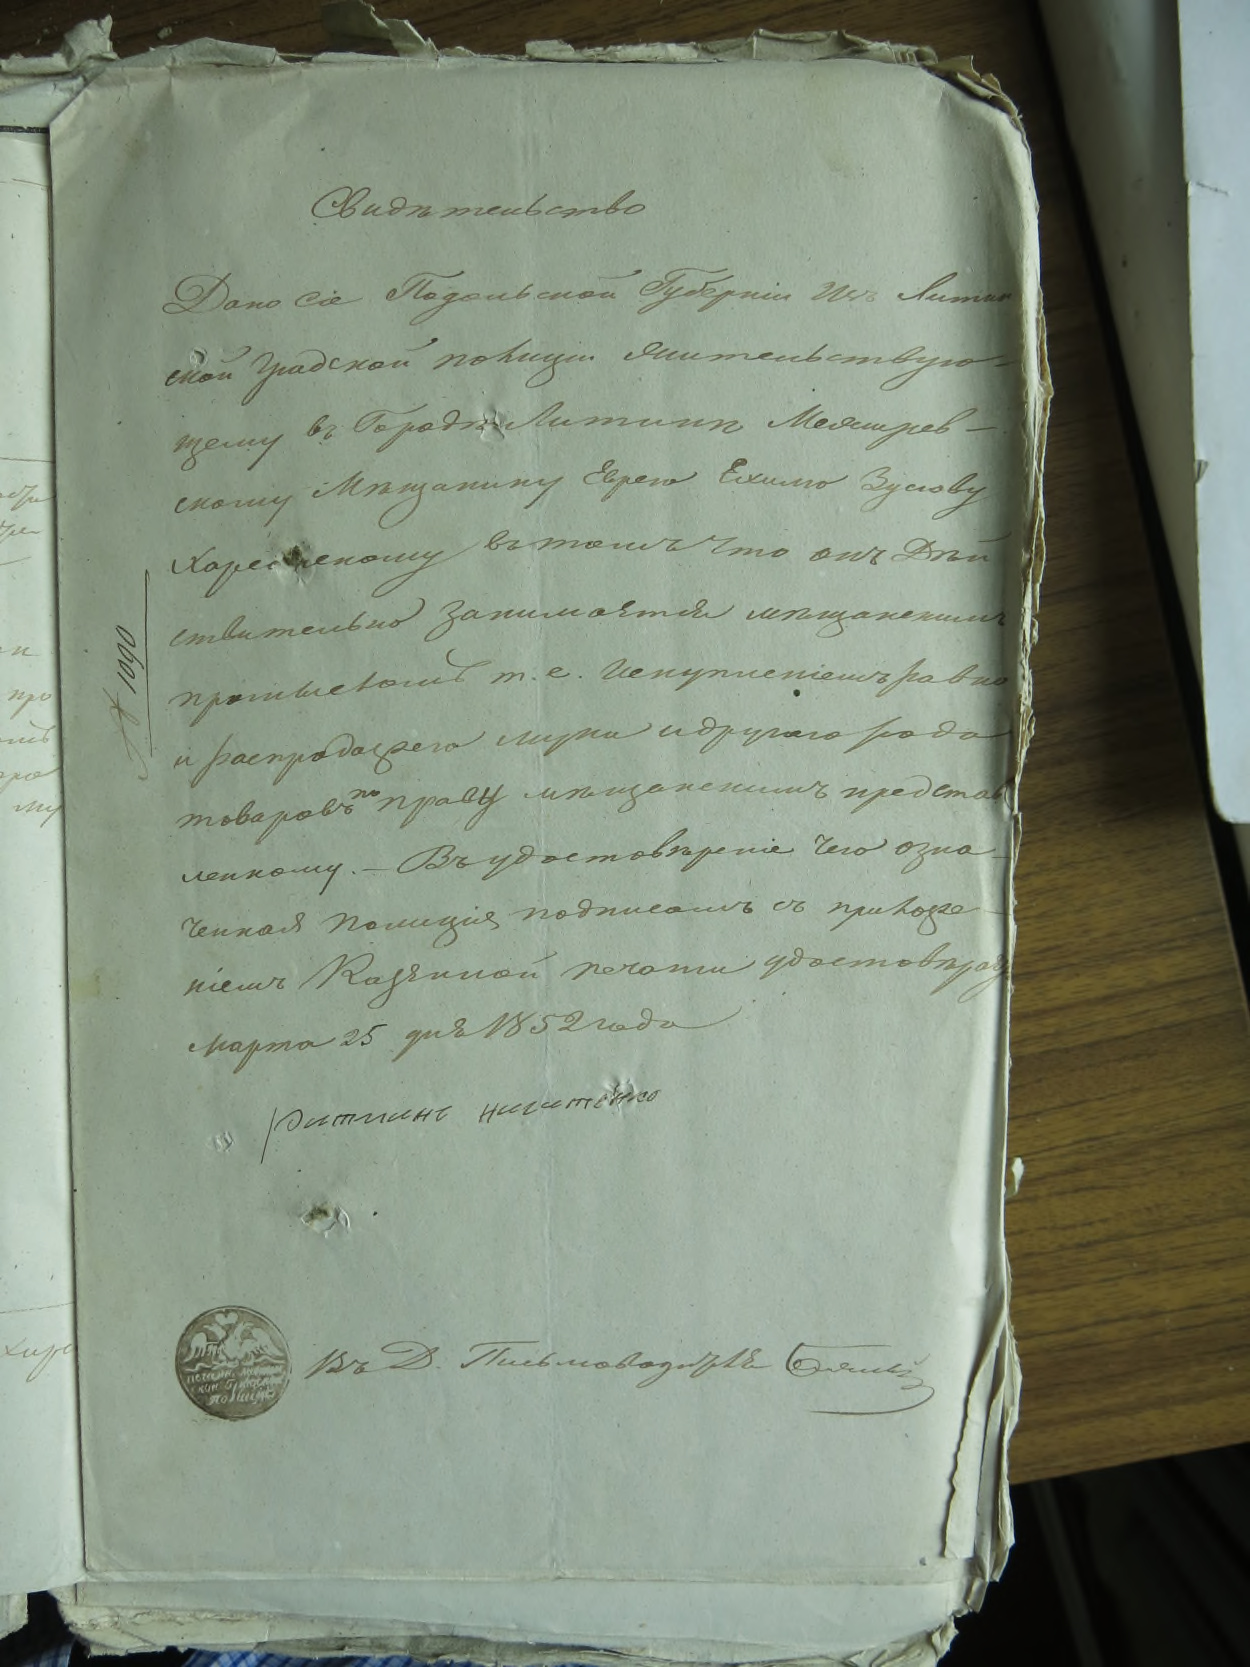 Свидѣтельство
Дано сіе Подольской Губерніи Изъ Литин
ской Градской полиціи жительствую-
щему въ Городѣ Литинѣ Межирев-
скому Мѣщанину Еврею Ехилю Зусову
въ томъ что онъ Дѣй
ствительно занимается мѣщанскимъ
промысломъ т.е. Искупленіемъ равно
и распродажею муки и другаго рода
товаровъ по праву мѣщанскимъ представ
ленному. – Въ удостовѣреніе чего озна-
ченная Полиція подписомъ съ приложе-
ніемъ Казенной печати удостовѣряетъ
Марта 25 дня 1852 года
№ 1090
Никитенко
Въ Д. Письмоводителя